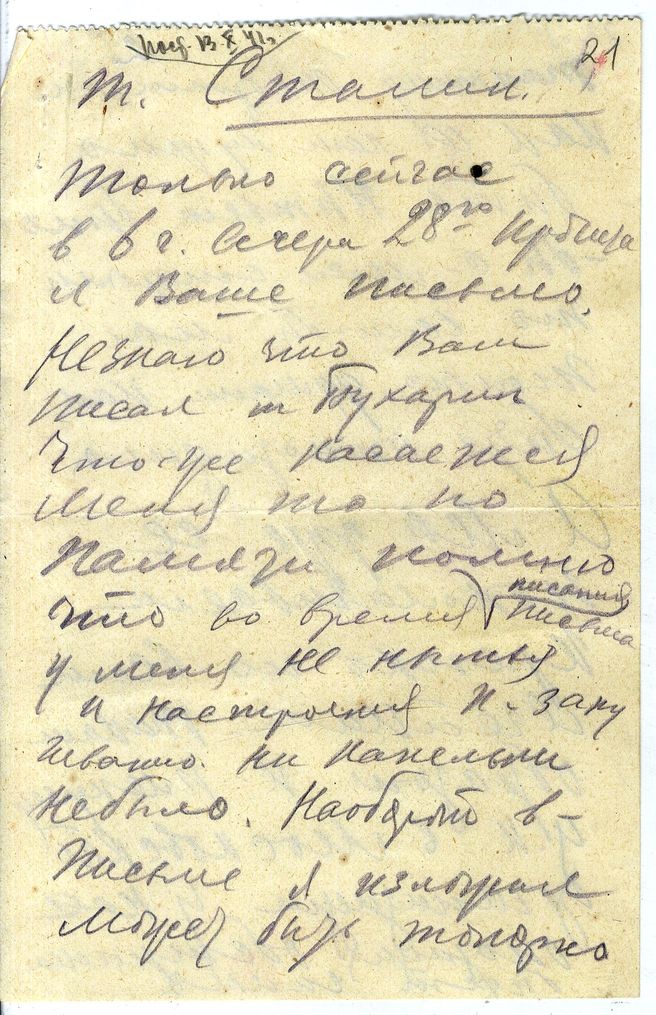 21
т. Сталин.
Только сейчас
в 6 ч. вечера 28го
я Ваше письмо.
Незнаю что Вам
писал т Бухарин
Что-же касаетжся
меня то по
памяти помню
что во время писания
письма
у меня не нытья
и настроения п-запу
гиванию ни капельки
небыло. Наоборот в-
письме я изложил
может быть топорно